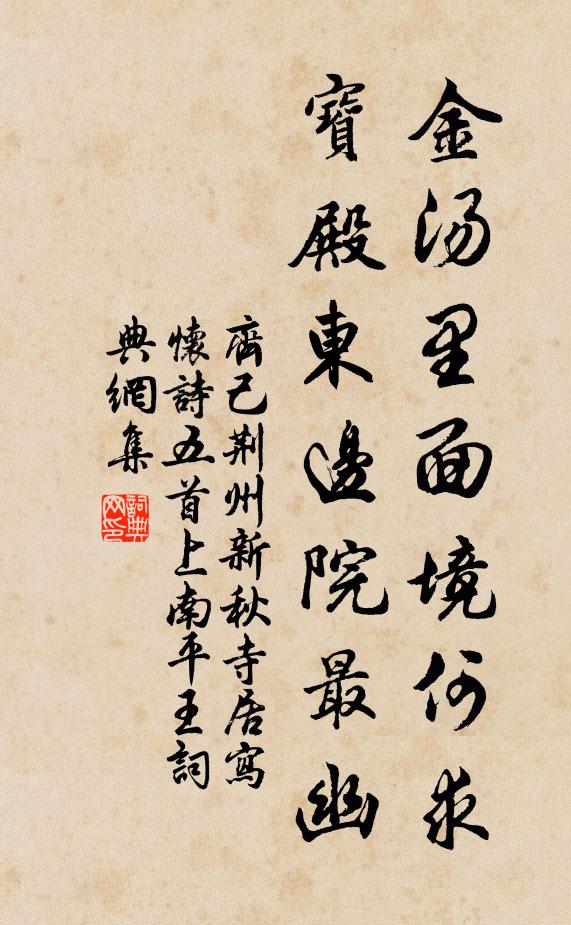 金汤里面境何求
寶殿東邊院最幽
齊己荆州新秋寺居寫
懷詩五首上南平王詞
典網集
詞典
网印